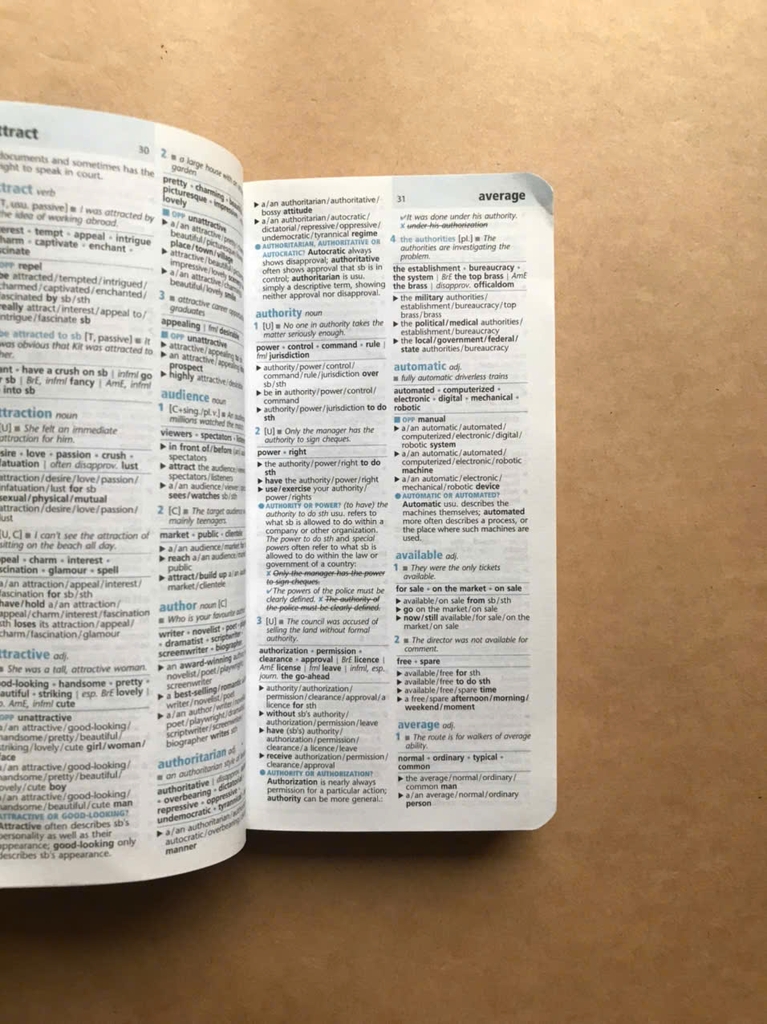 ttract
30
documents and sometimes has the
ight to speak in court.
tract verb
[T, usu. passive] ■ I was attracted by
the idea of working abroad.
erest • tempt • appeal • intrigue
harm • captivate • enchant •
scinate
OPP repel
be attracted/tempted/intrigued/
charmed/captivated/enchanted/
fascinated by sb/sth
really attract/interest/appeal to/
intrigue/fascinate sb
be attracted to sb [T, passive] ■ It
was obvious that Kit was attracted to
her.
ant • have a crush on sb | infml go
r sb | BrE, infml fancy | AmE, infml
into sb
ttraction noun
[U] ■ She felt an immediate
attraction for him.
sire • love • passion • crush •
fatuation | often disapprov. lust
attraction/desire/love/passion/
infatuation/lust for sb
sexual/physical/mutual
attraction/desire/love/passion/
lust
[U, C] ■ I can't see the attraction of
sitting on the beach all day.
peal • charm • interest •
scination • glamour • spell
a/an attraction/appeal/interest/
fascination for sb/sth
have/hold a/an attraction/
appeal/charm/interest/fascination
sth loses its attraction/appeal/
charm/fascination/glamour
ttractive adj.
■ She was a tall, attractive woman.
od-looking • handsome • pretty •
autiful • striking | esp. BrE lovely |
p. AmE, infml cute
OPP unattractive
a/an attractive/good-looking/
handsome/pretty/beautiful/
striking/lovely/cute girl/woman/
face
a/an attractive/good-looking/
handsome/pretty/beautiful/
lovely/cute boy
a/an attractive/good-looking/
handsome/beautiful/cute man
ATTRACTIVE OR GOOD-LOOKING?
Attractive often describes sb's
personality as well as their
appearance; good-looking only
describes sb's appearance.
2 ■ a large house with
garden
pretty • charming •
picturesque • impressive
lovely
■ OPP unattractive
▶ a/an attractive/pretty
beautiful/picturesque
place/town/village
▶ attractive/beautiful
impressive/lovely
▶ a/an attractive/charming
beautiful/lovely smile
3 ■ attractive career
graduates
appealing | fml desirable
■ OPP unattractive
▶ attractive/appealing
▶ an attractive/appealing
prospect
▶ highly attractive/
audience noun
1 [C+sing./pl.v.] ■ An
millions watched the
viewers • spectators •
▶ in front of/before
spectators
▶ attract the audience
spectators/listeners
▶ a/an audience/viewer
sees/watches sb/sth
2 [C] ■ The target audience
mainly teenagers.
market • public • clientele
▶ a/an audience/market for
▶ reach a/an audience
public
▶ attract/build up a/an
market/clientele
author noun [C]
■ Who is your favourite
writer • novelist • poet
• dramatist • scriptwriter
screenwriter • biographer
▶ an award-winning
novelist/poet/playwright
screenwriter
▶ a best-selling/romantic
writer/novelist
▶ a/an author/writer
poet/playwright/dramatist
scriptwriter/screenwriter
biographer writes sth
authoritarian adj.
■ an authoritarian style of
authoritative | disapprov.
• overbearing • dictatorial
repressive • oppressive •
undemocratic • tyrannical
▶ a/an authoritarian/
autocratic/overbearing
manner
▶ a/an authoritarian/authoritative/
bossy attitude
▶ a/an authoritarian/autocratic/
dictatorial/repressive/oppressive/
undemocratic/tyrannical regime
● AUTHORITARIAN, AUTHORITATIVE OR
AUTOCRATIC? Autocratic always
shows disapproval; authoritative
often shows approval that sb is in
control; authoritarian is usu.
simply a descriptive term, showing
neither approval nor disapproval.
authority noun
1 [U] ■ No one in authority takes the
matter seriously enough.
power • control • command • rule |
fml jurisdiction
▶ authority/power/control/
command/rule/jurisdiction over
sb/sth
▶ be in authority/power/control/
command
▶ authority/power/jurisdiction to do
sth
2 [U] ■ Only the manager has the
authority to sign cheques.
power • right
▶ the authority/power/right to do
sth
▶ have the authority/power/right
▶ use/exercise your authority/
power/rights
● AUTHORITY OR POWER? (to have) the
authority to do sth usu. refers to
what sb is allowed to do within a
company or other organization.
The power to do sth and special
powers often refer to what sb is
allowed to do within the law or
government of a country:
✗ Only the manager has the power
to sign cheques.
✓ The powers of the police must be
clearly defined. ✗ The authority of
the police must be clearly defined.
3 [U] ■ The council was accused of
selling the land without formal
authority.
authorization • permission •
clearance • approval | BrE licence |
AmE license | fml leave | infml, esp.
journ. the go-ahead
▶ authority/authorization/
permission/clearance/approval/a
licence for sth
▶ without sb's authority/
authorization/permission/leave
▶ have (sb's) authority/
authorization/permission/
clearance/a licence/leave
▶ receive authorization/permission/
clearance/approval
● AUTHORITY OR AUTHORIZATION?
Authorization is nearly always
permission for a particular action;
authority can be more general.:
31
average
✓It was done under his authority.
✗ under his authorization
4 the authorities [pl.] ■ The
authorities are investigating the
problem.
the establishment • bureaucracy •
the system | BrE the top brass | AmE
the brass | disapprov. officialdom
▶ the military authorities/
establishment/bureaucracy/top
brass/brass
▶ the political/medical authorities/
establishment/bureaucracy
▶ the local/government/federal/
state authorities/bureaucracy
automatic adj.
■ fully automatic driverless trains
automated • computerized •
electronic • digital • mechanical •
robotic
■ OPP manual
▶ a/an automatic/automated/
computerized/electronic/digital/
robotic system
▶ a/an automatic/automated/
computerized/electronic/robotic
machine
▶ a/an automatic/electronic/
mechanical/robotic device
● AUTOMATIC OR AUTOMATED?
Automatic usu. describes the
machines themselves; automated
more often describes a process, or
the place where such machines are
used.
available adj.
1 ■ They were the only tickets
available.
for sale • on the market • on sale
▶ available/on sale from sb/sth
▶ go on the market/on sale
▶ now/still available/for sale/on the
market/on sale
2 ■ The director was not available for
comment.
free • spare
▶ available/free for sth
▶ available/free to do sth
▶ available/free/spare time
▶ a free/spare afternoon/morning/
weekend/moment
average adj.
1 ■ The route is for walkers of average
ability.
normal • ordinary • typical •
common
▶ the average/normal/ordinary/
common man
▶ a/an average/normal/ordinary
person